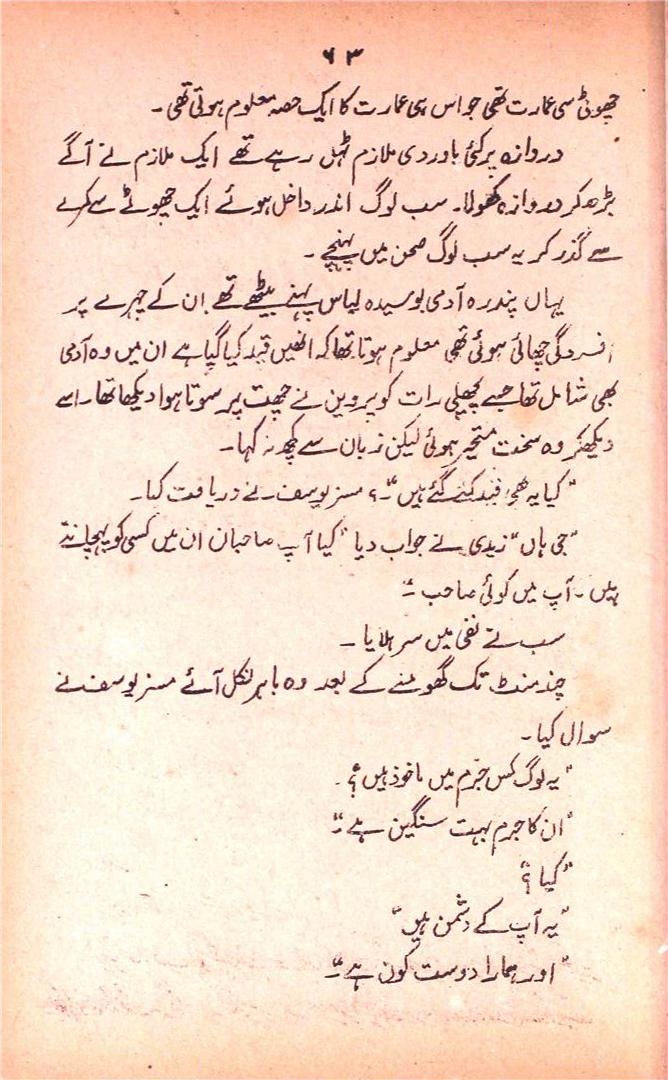 ۶۳
چھوٹی سی عمارت تھی جو اس ہی عمارت کا ایک حصہ معلوم ہوتی تھی۔
دروازہ پر کئی باوردی ملازم ٹہل رہے تھے ایک ملازم نے آگے
بڑھ کر دروازہ کھولا۔ سب لوگ اندر داخل ہوئے ایک چھوٹے سے کمرے
سے گذر کر یہ سب لوگ صحن میں پہنچے۔
یہاں پندرہ آدمی بوسیدہ لباس پہنے بیٹھے تھے ان کے چہرے پر
افسردگی چھائی ہوئی تھی معلوم ہوتا تھا کہ انھیں قید کیا گیا ہے ان میں وہ آدمی
بھی شامل تھا جسے پچھلی رات کو پروین نے چھت پر سوتا ہوا دیکھا تھا۔ اسے
دیکھکر وہ سخت متحیر ہوئی لیکن زبان سے کچھ نہ کہا۔
"کیا یہ بھی قید کئے گئے ہیں"۔؟ مسز یوسف نے دریافت کیا۔
"جی ہاں" زیدی نے جواب دیا "کیا آپ صاحبان ان میں کسی کو پہچانتے
ہیں۔ آپ میں کوئی صاحب"۔
سب نے نفی میں سر ہلایا۔
چند منٹ تک گھومنے کے بعد وہ باہر نکل آئے مسز یوسف نے
سوال کیا۔
"یہ لوگ کس جرم میں ماخوذ ہیں؟"۔
"ان کا جرم بہت سنگین ہے"۔
"کیا؟"
"یہ آپ کے دشمن ہیں"
"اور ہمارا دوست کون ہے"۔